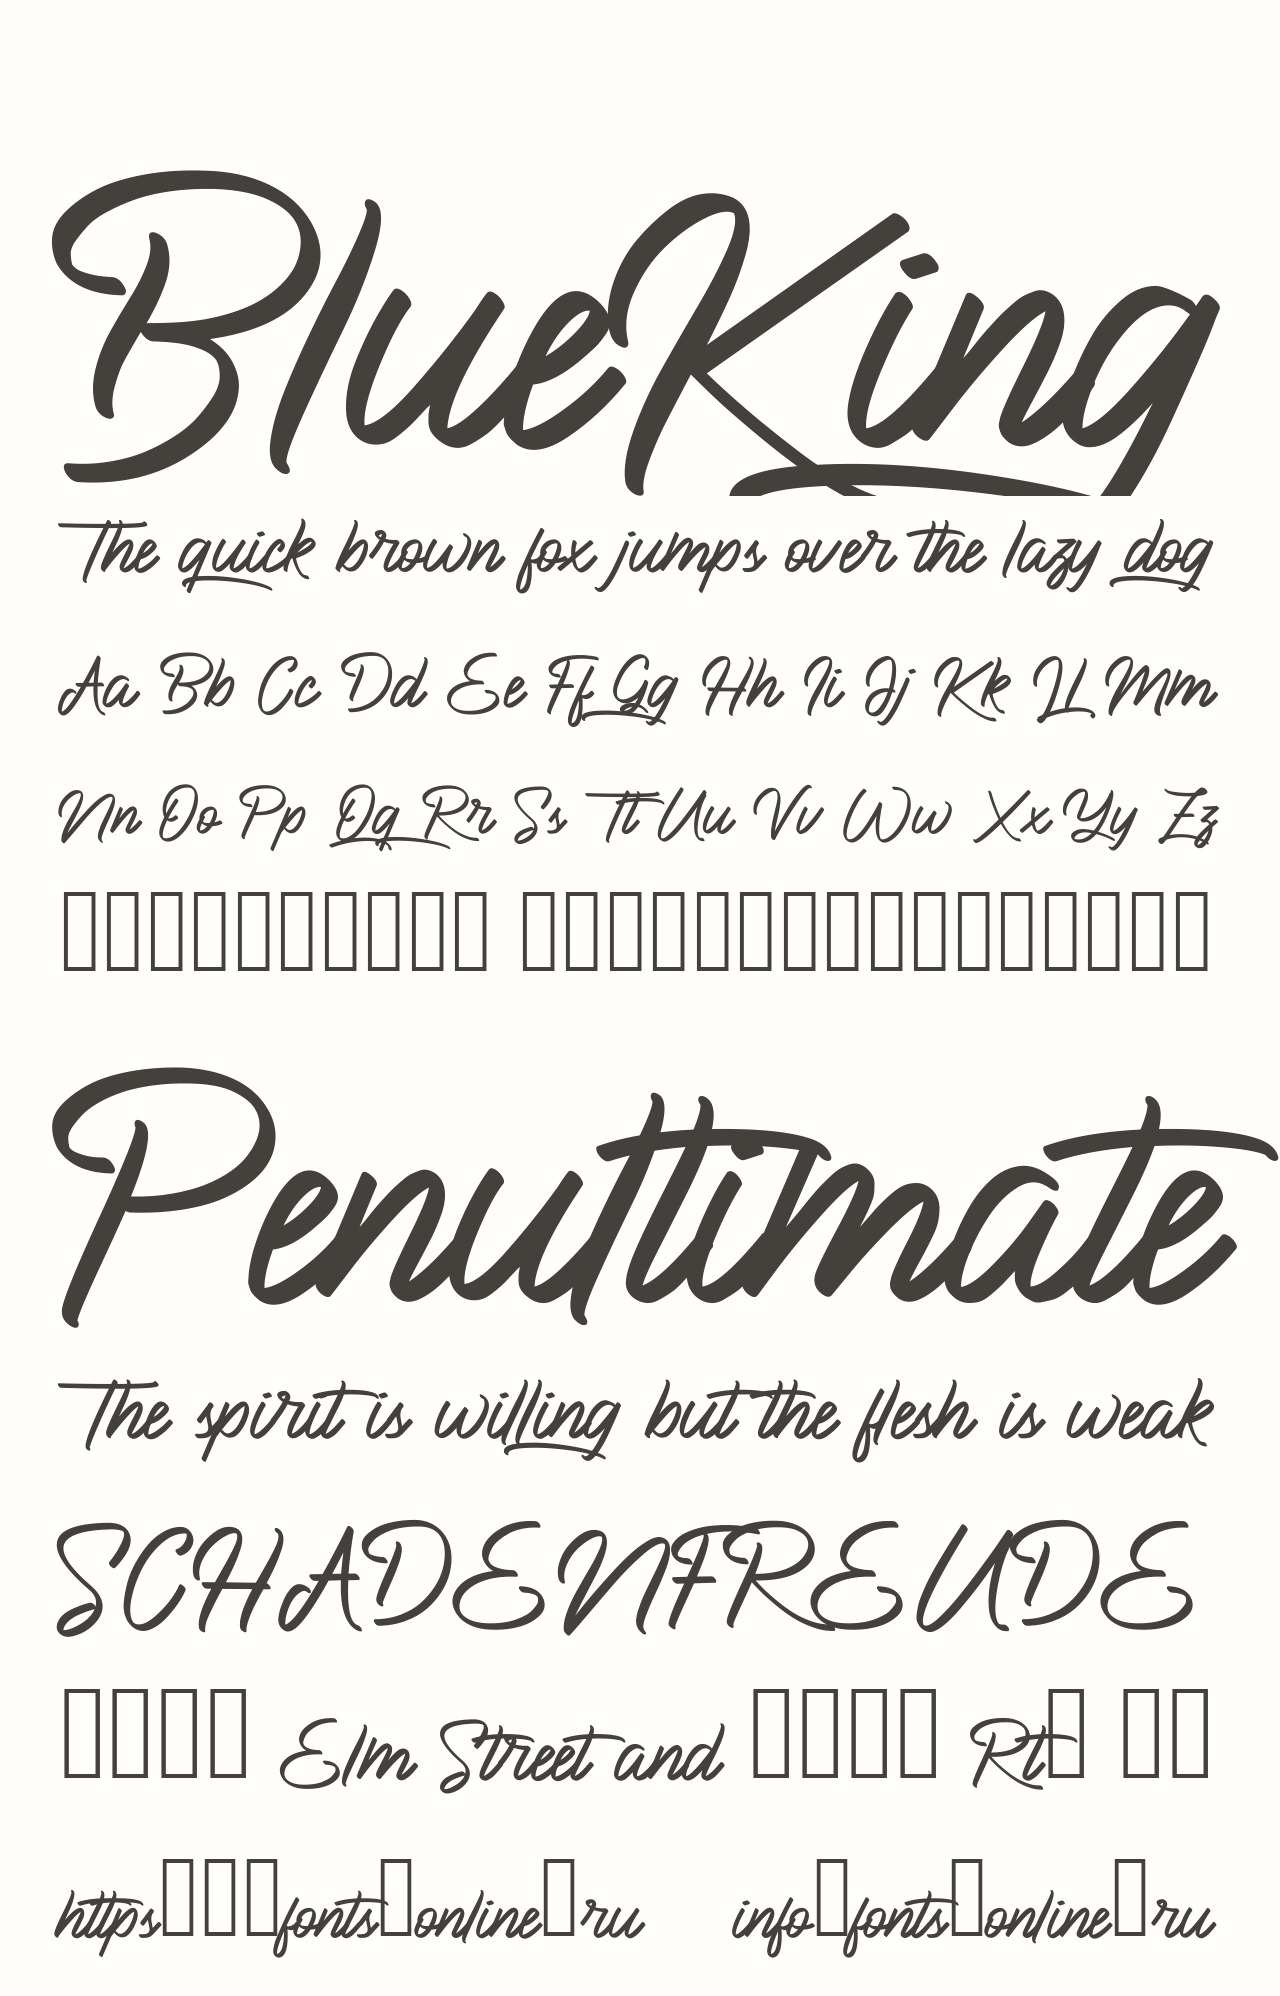 BlueKing
The quick brown fox jumps over the lazy dog
Aa Bb Cc Dd Ee Ff Gg Hh Ii Jj Kk Ll Mm
Nn Oo Pp Qq Rr Ss Tt Uu Vv Ww Xx Yy Zz
▯▯▯▯▯▯▯▯▯▯ ▯▯▯▯▯▯▯▯▯▯▯▯▯▯▯▯
Penultimate
The spirit is willing but the flesh is weak
SCHADENFREUDE
▯▯▯▯ Elm Street and ▯▯▯▯ Rt▯ ▯▯
https▯▯▯fonts▯online▯ru info▯fonts▯online▯ru